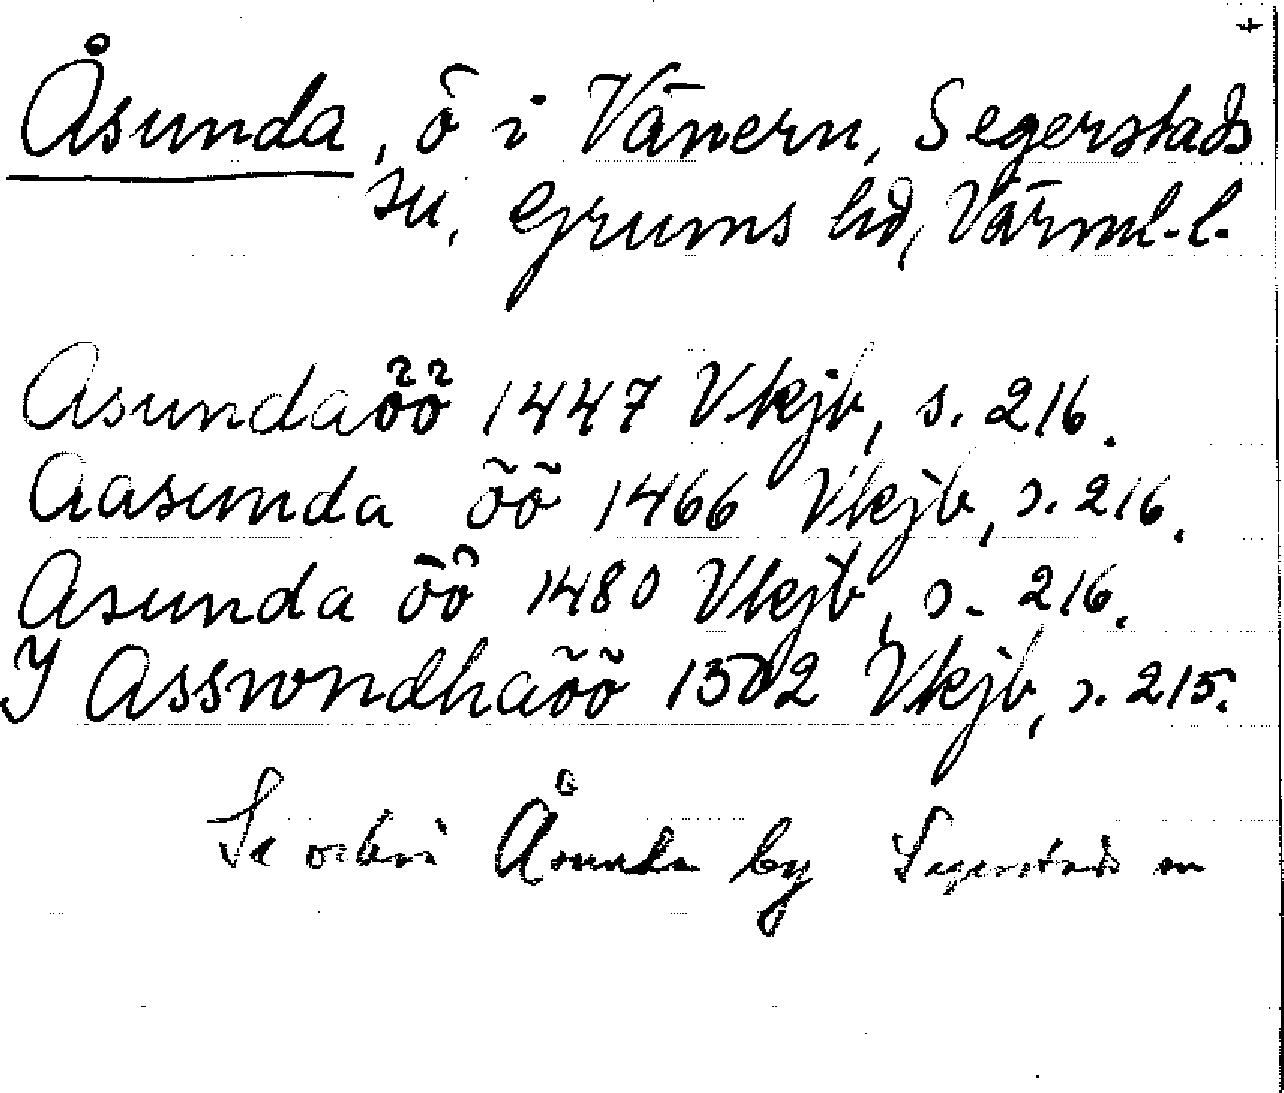 +
Åsunda, ö i Vänern, Segerstads
sn, Grums hd, Värml. l.
Asundaöö 1447 Vkjb, s. 216.
Aasunda öö 1466 Vkjb, s. 216.
Asunda öö 1480 Vkjb, s. 216.
J Asswndhaöö 1502 Vkjb, s. 215.
Se också Åsunda by Segerstads sn